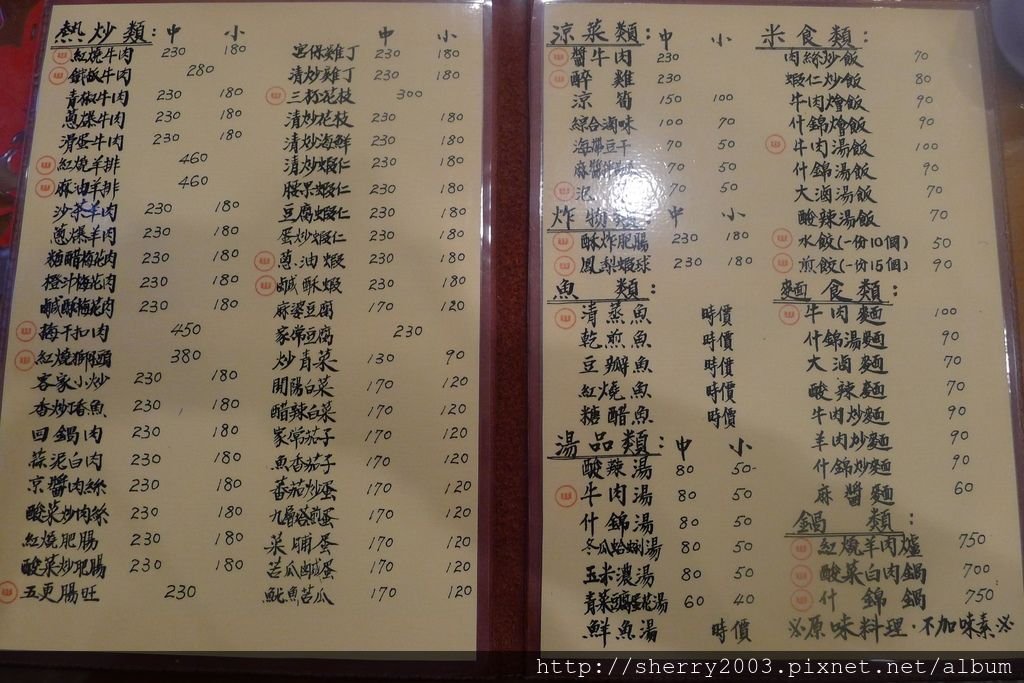 熱炒類: 中 小
紅燒牛肉 230 180
鐵板牛肉 280
青椒牛肉 230 180
蔥爆牛肉 230 180
滑蛋牛肉 230 180
紅燒羊排 460
麻油羊排 460
沙茶羊肉 230 180
蔥爆羊肉 230 180
糖醋梅花肉 230 180
橙汁梅花肉 230 180
鹹酥梅花肉 230 180
梅干扣肉 450
紅燒獅頭 380
客家小炒 230 180
香炒𩵚魚 230 180
回鍋肉 230 180
蒜泥白肉 230 180
京醬肉絲 230 180
酸菜炒肉絲 230 180
紅燒肥腸 230 180
酸菜炒肥腸 230 180
五更腸旺 230
中 小
宮保雞丁 230 180
清炒雞丁 230 180
三杯花枝 300
清炒花枝 230 180
清炒海鮮 230 180
清炒蝦仁 230 180
腰果蝦仁 230 180
豆腐蝦仁 230 180
蛋炒蝦仁 230 180
蔥油蝦 230 180
鹹酥蝦 230 180
麻婆豆腐 170 120
家常豆腐 230
炒青菜 130 90
開陽白菜 170 120
醋辣白菜 170 120
家常茄子 170 120
魚香茄子 170 120
番茄炒蛋 170 120
九層塔煎蛋 170 120
菜脯蛋 170 120
苦瓜鹹蛋 170 120
魩魚苦瓜 170 120
涼菜類: 中 小
醬牛肉 230
醉雞 230
涼筍 150 100
綜合滷味 100 70
海帶豆干 70 50
麻醬 70 50
泡 70 50
炸物類 中 小
酥炸肥腸 230 180
鳳梨蝦球 230 180
魚類:
清蒸魚 時價
乾煎魚 時價
豆瓣魚 時價
紅燒魚 時價
糖醋魚 時價
湯品類: 中 小
酸辣湯 80 50
牛肉湯 80 50
什錦湯 80 50
冬瓜蛤蜊湯 80 50
玉米濃湯 80 50
青菜豆腐蛋花湯 60 40
鮮魚湯 時價
米食類:
肉絲炒飯 70
蝦仁炒飯 80
牛肉燴飯 90
什錦燴飯 90
牛肉湯飯 100
什錦湯飯 90
大滷湯飯 70
酸辣湯飯 70
水餃(一份10個) 50
煎餃(一份15個) 90
麵食類:
牛肉麵 100
什錦湯麵 90
大滷麵 70
酸辣麵 70
牛肉炒麵 90
羊肉炒麵 90
什錦炒麵 90
麻醬麵 60
鍋類:
紅燒羊肉爐 750
酸菜白肉鍋 700
什錦鍋 750
※原味料理.不加味素※
http://sherry2003.pixnet.net/album